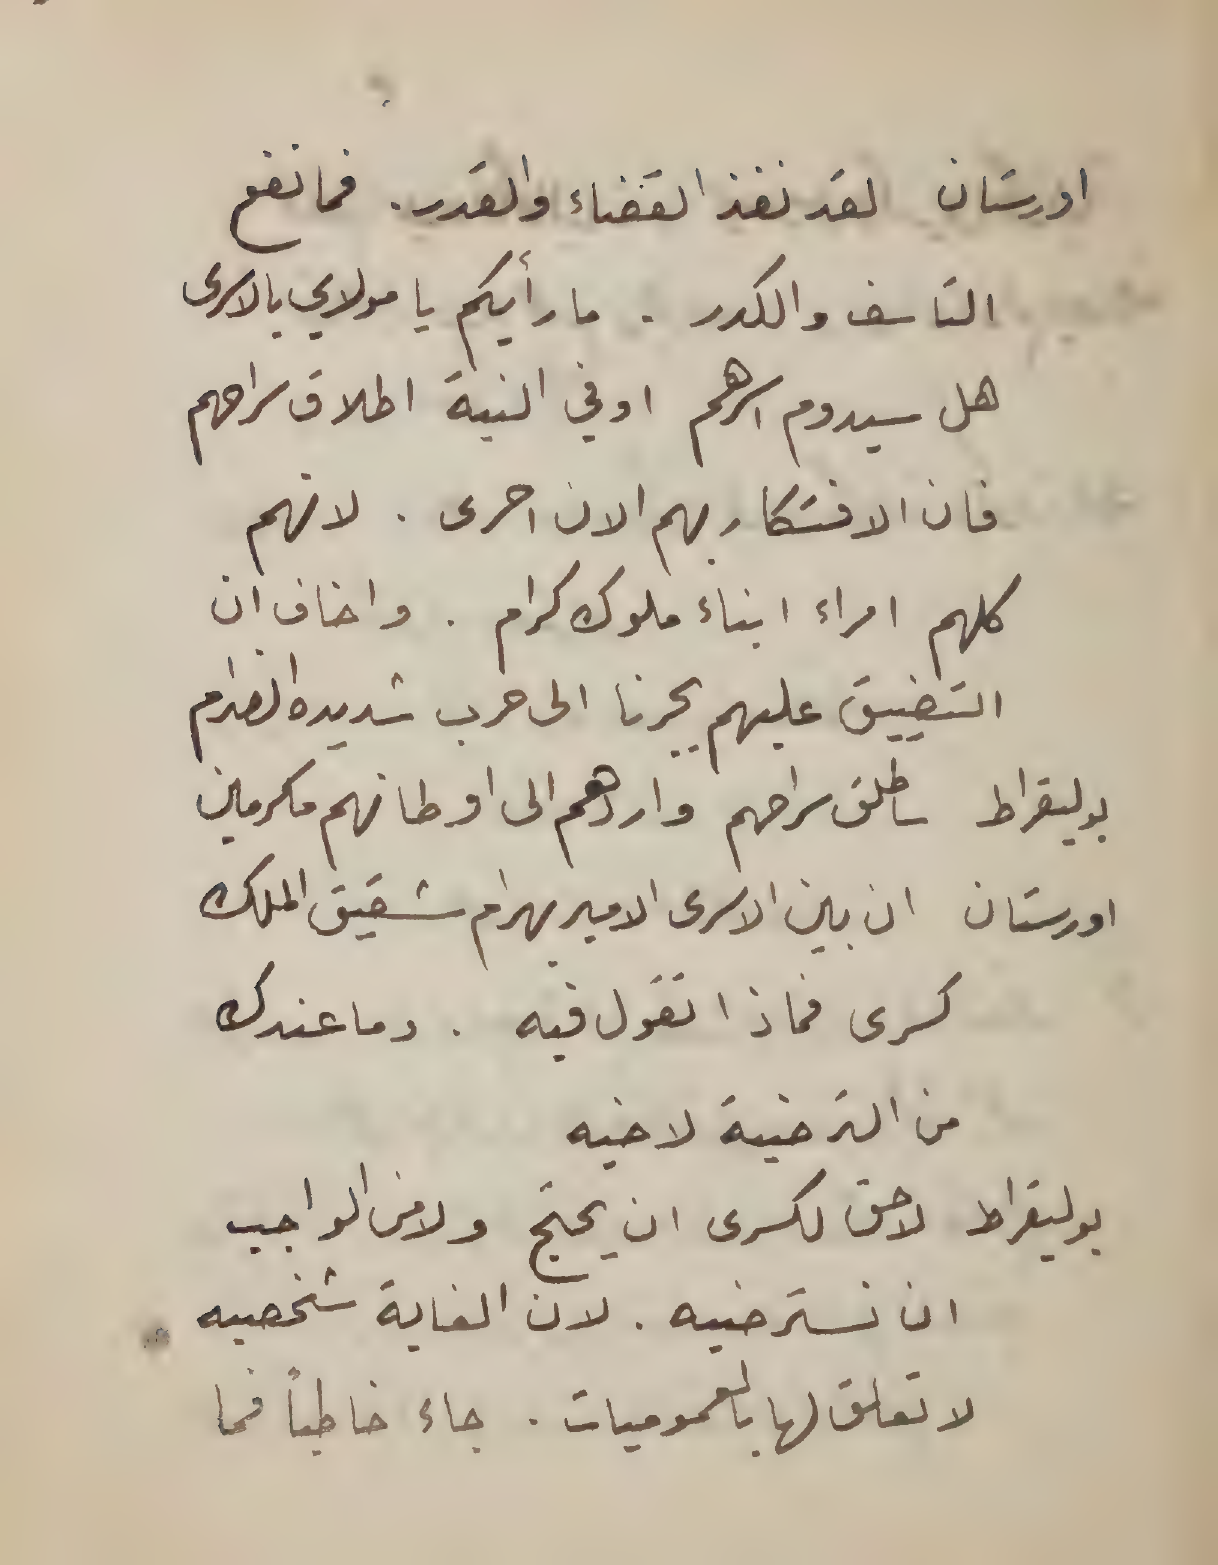 اورستان لقد نفذ القضاء والقدر. فما نفع
التاسف والكدر . ما رأيكم يا مولاي بالاسرى
هل سيدوم اسرهم او في النية اطلاق سراحهم
فان الافتكار بهم الان احرى . لانهم
كلهم امراء ابناء ملوك كرام . واخاف ان
التضييق عليهم يجرنا الى حرب شديده الضرام
بوليقراط ساطلق سراحهم واردهم الى اوطانهم مكرمين
اورستان ان بين الاسرى الامير بهرام شقيق الملك
كسرى فماذا تقول فيه . وما عندك
من الترضية لاخيه
بوليقراط لاحق لكسرى ان يحتج ولا من الواجب
ان نسترضيه . لان الغاية شخصيه
لا تعلق لها بالعموميات . جاء خاطباً فما